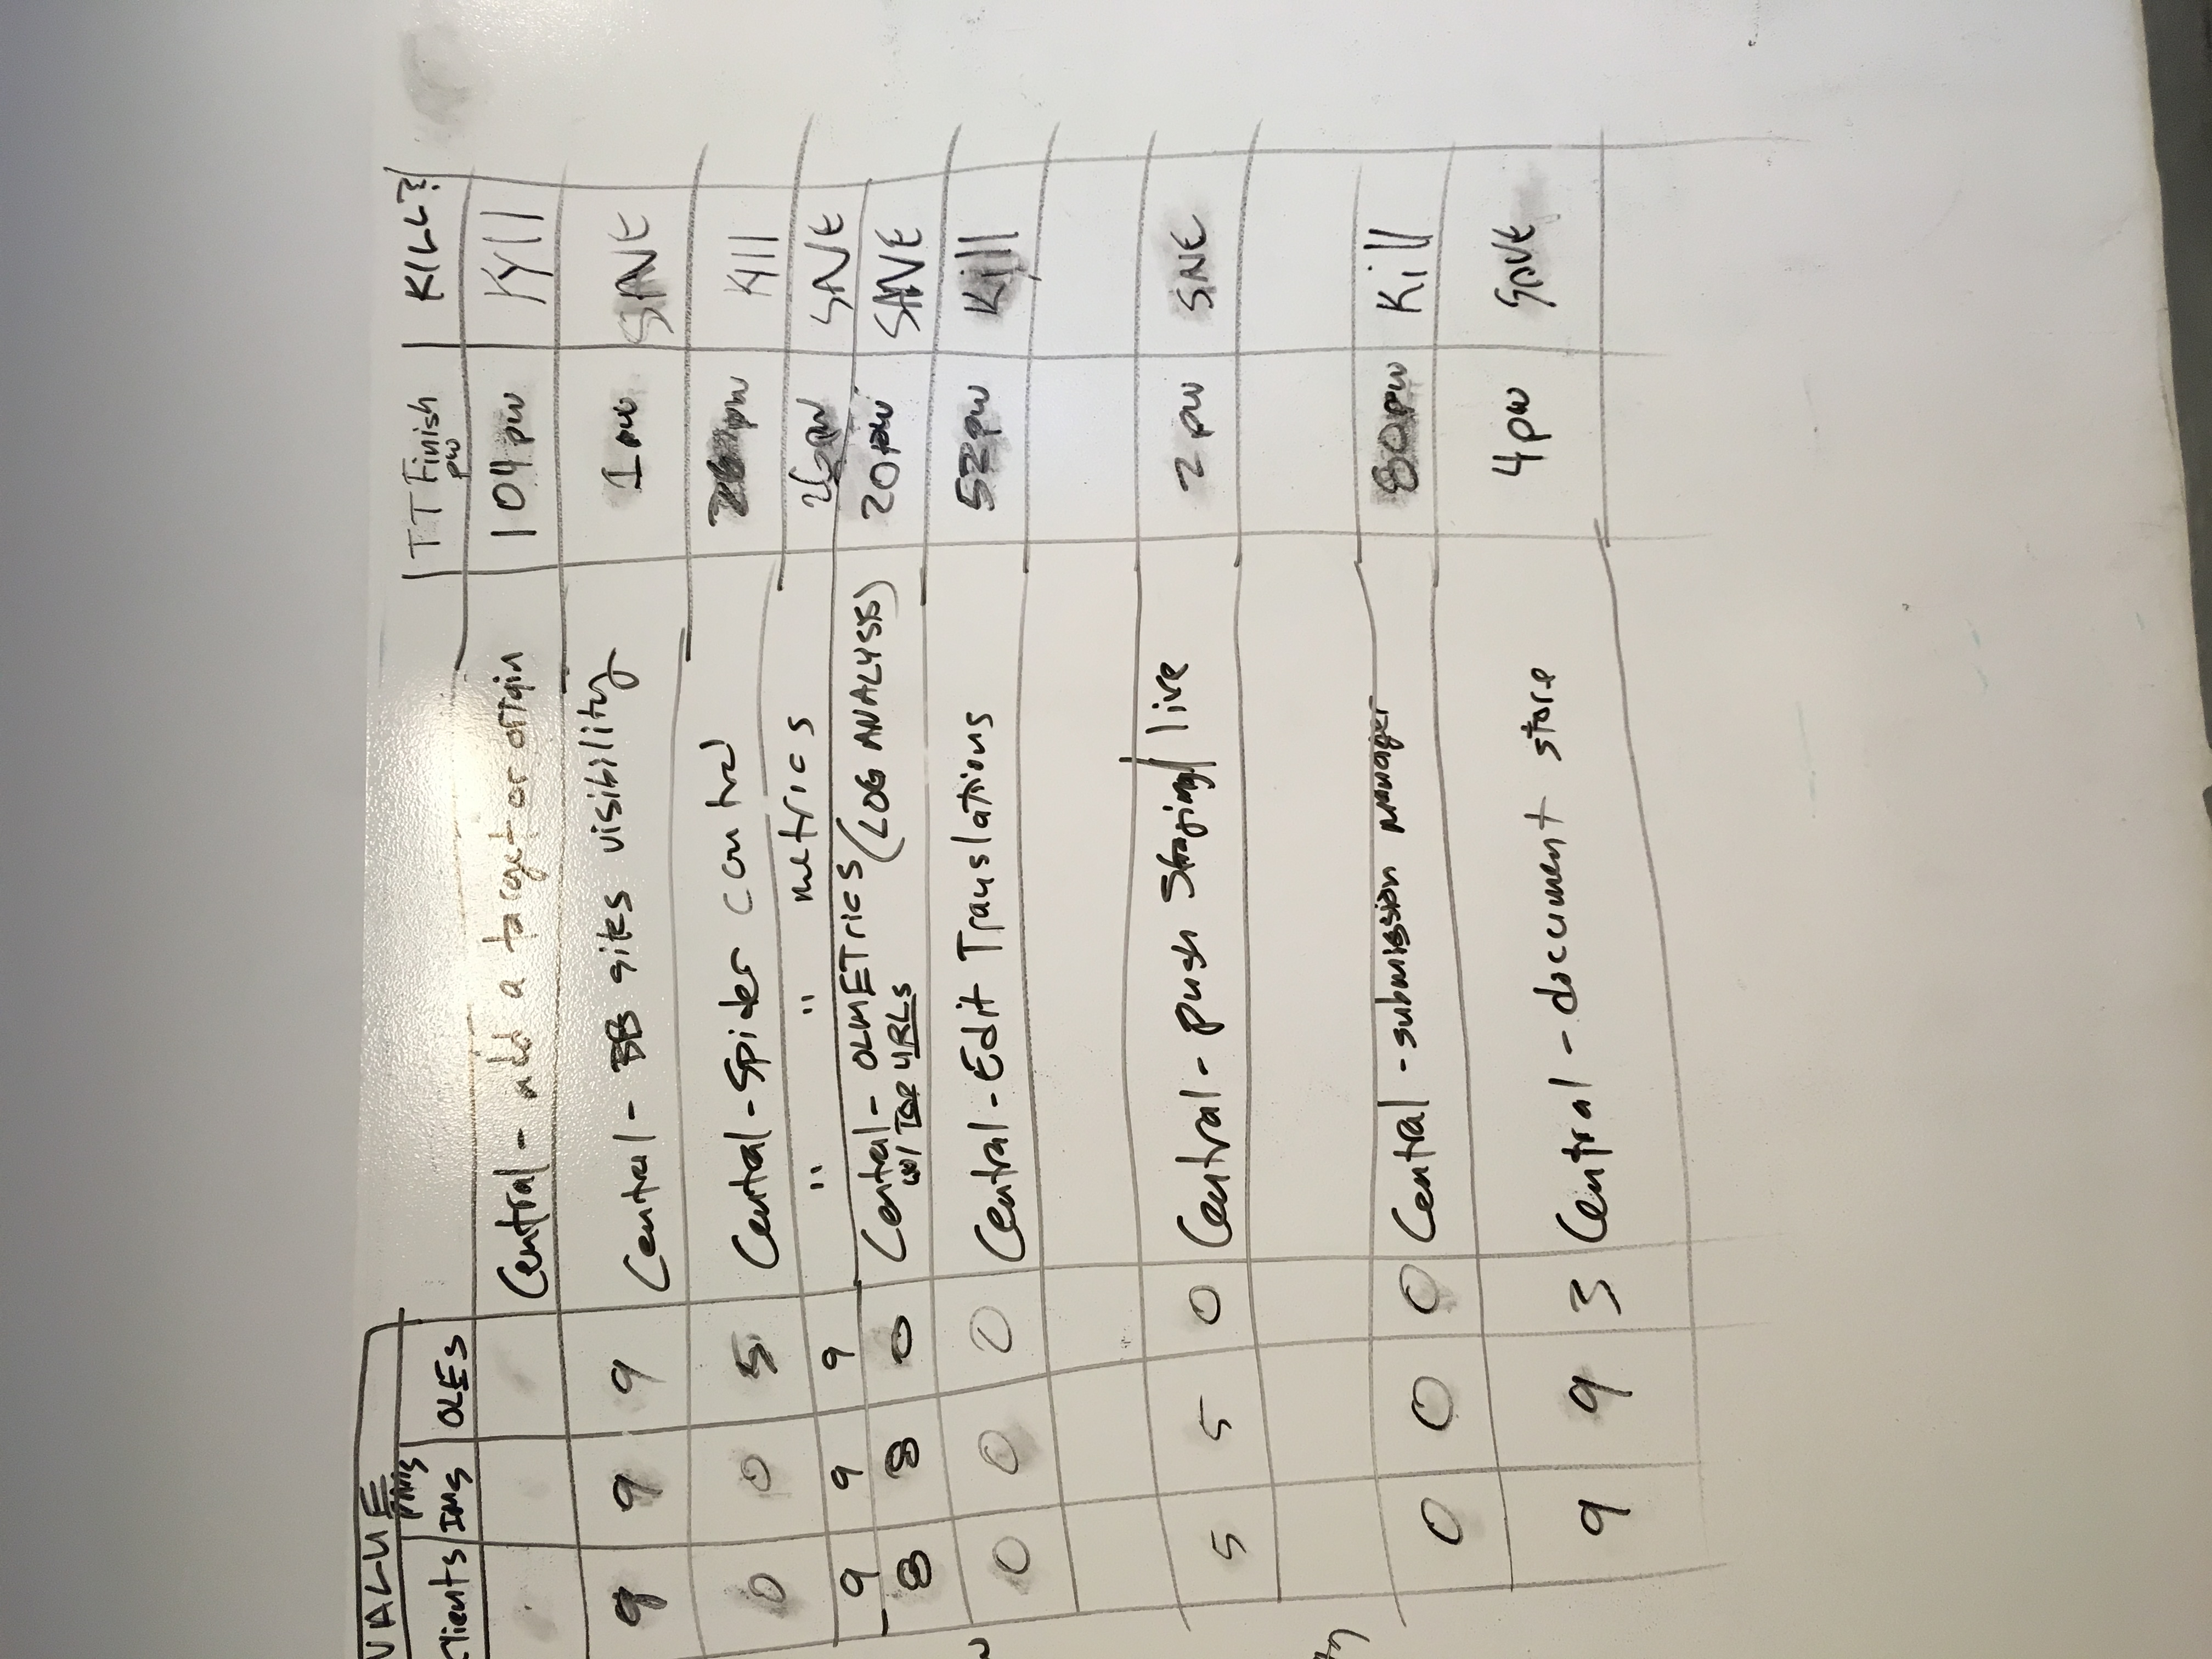 VALUE
Clients PMs IMs OLES TT Finish pw KILL?
Central - add a target or origin 104 pw Kyll
9 9 9 Central - BB sites visibility 1 pw SAVE
0 0 5 Central - Spider control pw Kyll
9 9 9 " " metrics pw SAVE
8 8 0 Central - OLMETrics (LOG ANALYSIS) 20 pw SAVE
w/ TOP URLs
0 0 0 Central - Edit Translations 52 pw Kill
5 5 0 Central - push Staging/live 2 pw SAVE
0 0 0 Central - submission manager 80 pw Kill
9 9 3 Central - document store 4 pw SAVE